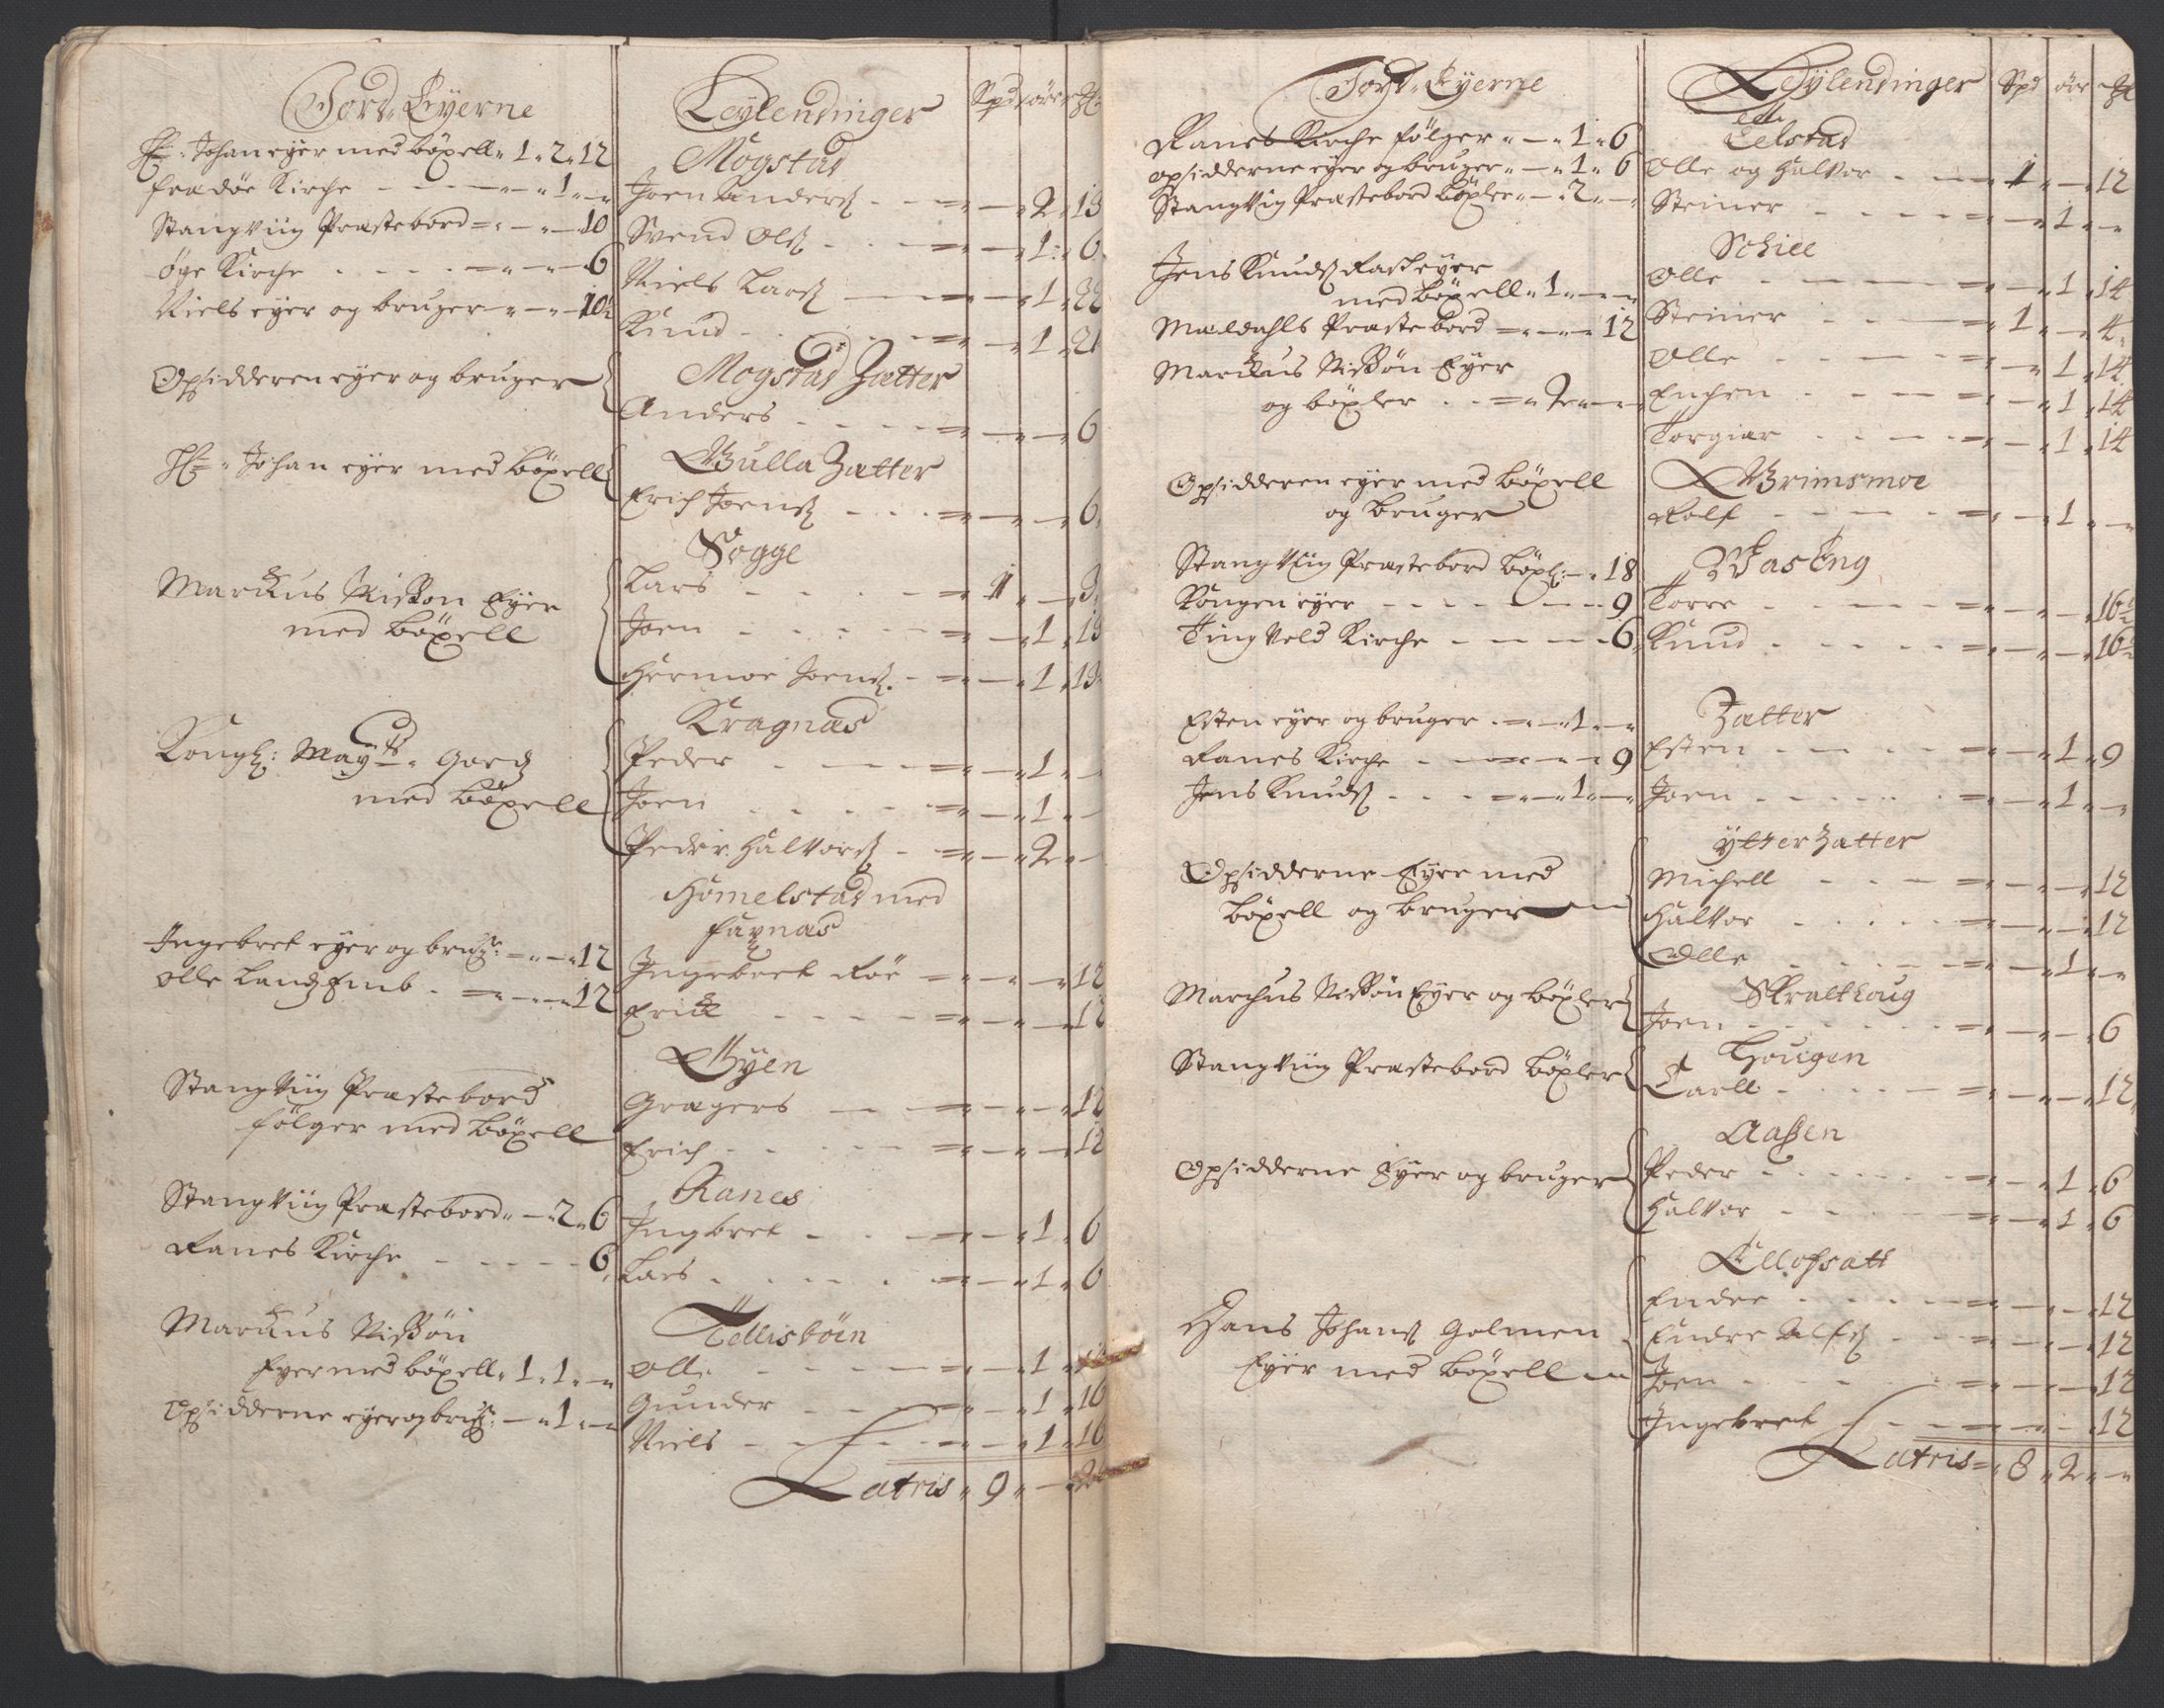 Jord-Eyerne
Hr: Johan eyer med böxell " 1 " 2 " 12
Fredöe Kirche " 1 "
Stangviig Præstebord 10
Öye Kirche 6
Niels eyer og bruger 10½
Opsidderen eyer og bruger
Hr: Johan eyer med böxell
Marchus Nissøn Eyer
med böxell
Kongl: Mayts Goedz
med böxell
Ingebret eyer og brug: 12
Olle 12
Stangviig Præstebord
følger med böxell
Stangviig Præstebord 2 " 6
Ranes Kirche 6
Marchus Nissøn
Eyer med böxell " 1 " 1 "
Opsidderne eyer og brug: 1 "
Leylendinger Spd öre
Mogstad
Joen Anders 2 " 13
Svend Ols 1 " 6
Niels Lars 1 " 22
Knud 1 " 21
Mogstad Zætter
Anders 6
Gulla Zætter
Erich Joens 6
Sogge
Lars 1 " 3
Joen 1 " 13
Hermoe Joens 1 " 13
Kragnæs
Peder 1
Joen 1
Peder Halvors 2
Homelstad med
Faxnæs
Ingebret Roe 12
Erich 12
Øyen
Gregers 12
Erich 12
Ranes
Ingbret 1 " 6
Lars 1 " 6
Tellisböen
Olle 1
Gunder 1 " 16
Niels 1 " 16
Latris " 9 "
Jord-Eyerne
Ranes Kirche følger 1 " 6
opsidderne eyer og bruger 1 " 6
Stangviig Præstebord böxler 2 "
Jens Knuds Rask eyer
med böxell " 1 "
Mældahls Præstebord 12
Marchus Nissøn Eyer
og böxler 2
Opsidderen eyer med böxell
og bruger
Stangviig Præstebord böxl: 18
Kongen eyer 9
Tingvold Kirche 6
Esten eyer og bruger 1
Ranes Kirche 9
Jens Knuds 1
Opsidderne Eyer med
böxell og bruger
Marchus Nissøn Eyer og böxler
Stangviig Præstebord böxler
Opsidderne Eyer og bruger
Hans Johans Golmen
Eyer med böxell
Leylendinger Spd öre
Eelstad
Olle og Halvor 1 " 12
Steiner 1
Schiee
Olle 1 " 14
Steiner 1 " 4
Olle 1 " 14
1 " 14
Torgier 1 " 14
Grimsmoe
Rolf 1
Waseng
Torre 16½
Knud 16½
Zætter
Esten 1 " 9
Joen 1
Ytter Zætter
Michell 12
Halvor 12
Olle 1
Skralthoug
Joen 6
Hougen
Carll 12
Aaßen
Peder 1 " 6
Halvor 1 " 6
Endre 12
Endre Alfs 12
Joen 12
Ingebret 12
Latris " 8 " 2 "